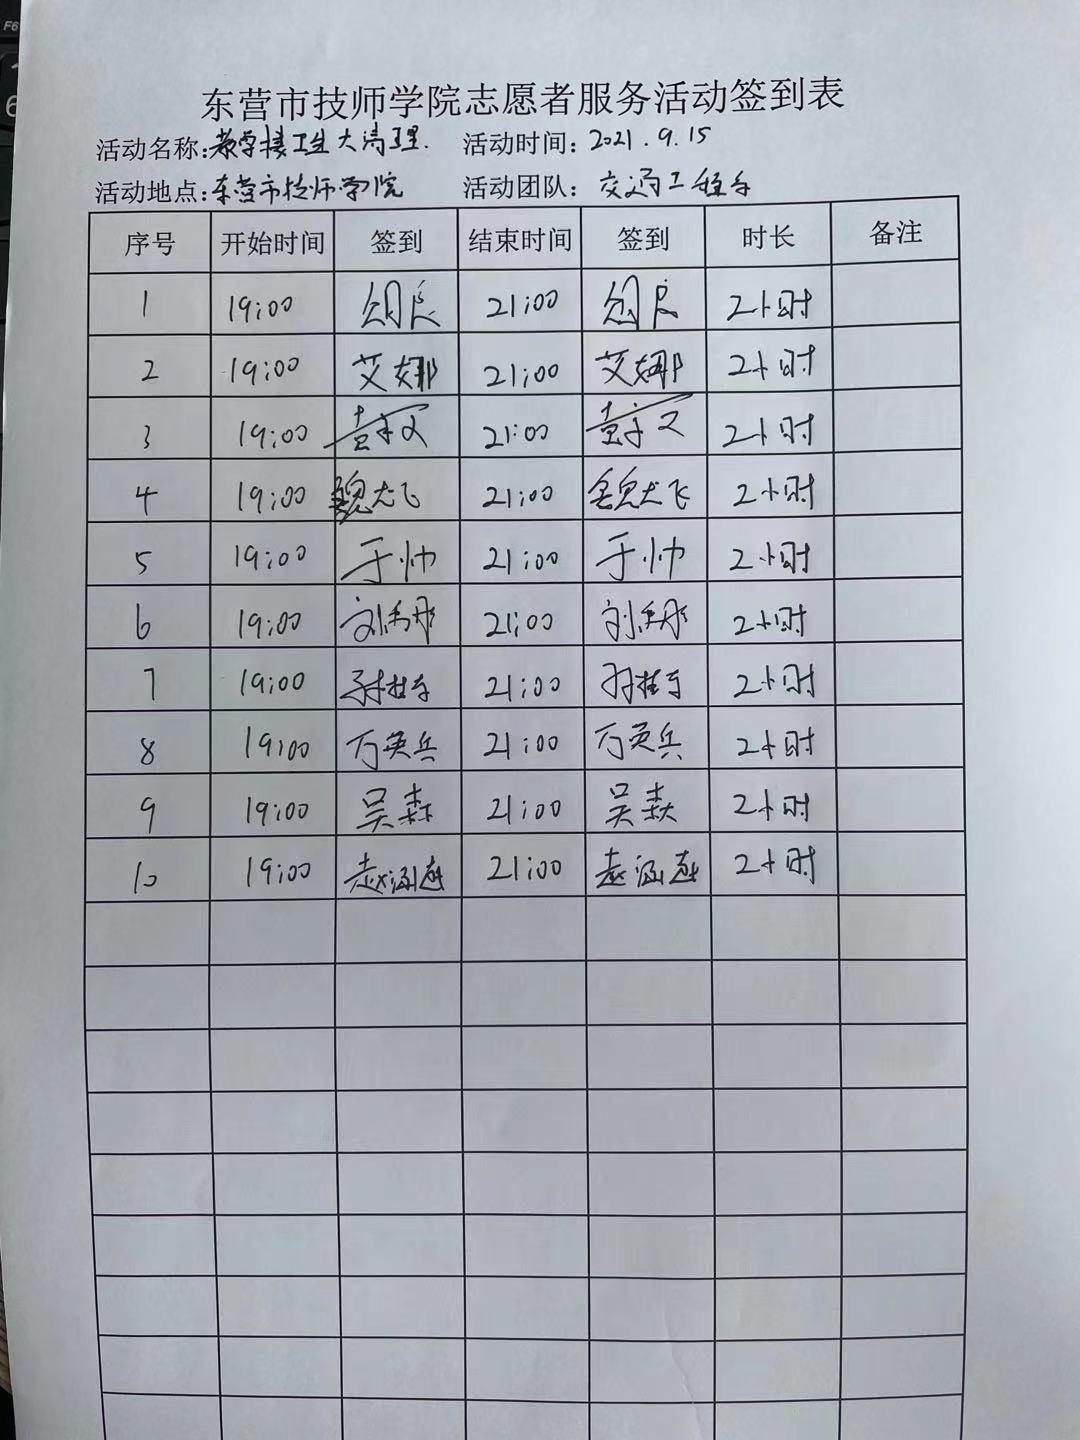 F6
6
东营市技师学院志愿者服务活动签到表
活动名称:教学楼卫生大清理. 活动时间: 2021.9.15
活动地点:东营市技师学院 活动团队: 交通工程系
序号 开始时间 签到 结束时间 签到 时长 备注
1 19:00 21:00 2小时
2 19:00 艾娜 21:00 艾娜 2小时
3 19:00 21:00 2小时
4 19:00 魏龙飞 21:00 魏龙飞 2小时
5 19:00 于帅 21:00 于帅 2小时
6 19:00 21:00 2小时
7 19:00 21:00 2小时
8 19:00 万英兵 21:00 万英兵 2小时
9 19:00 吴森 21:00 吴森 2小时
10 19:00 21:00 2小时